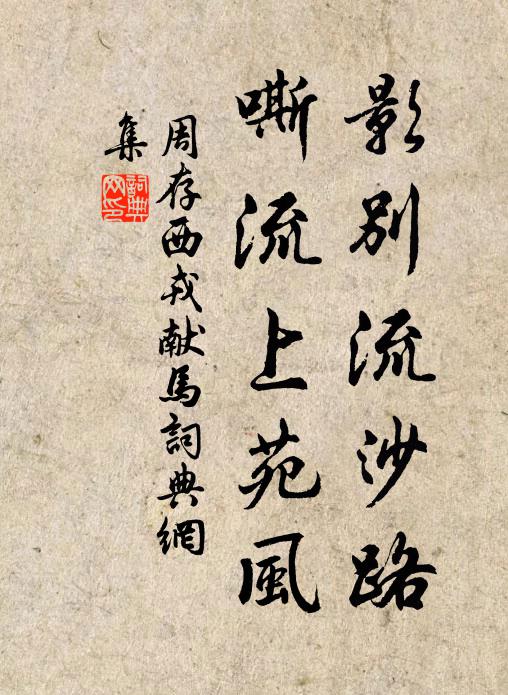 影别流沙路
嘶流上苑風
周存西戎献馬詞典網
集
詞典網印